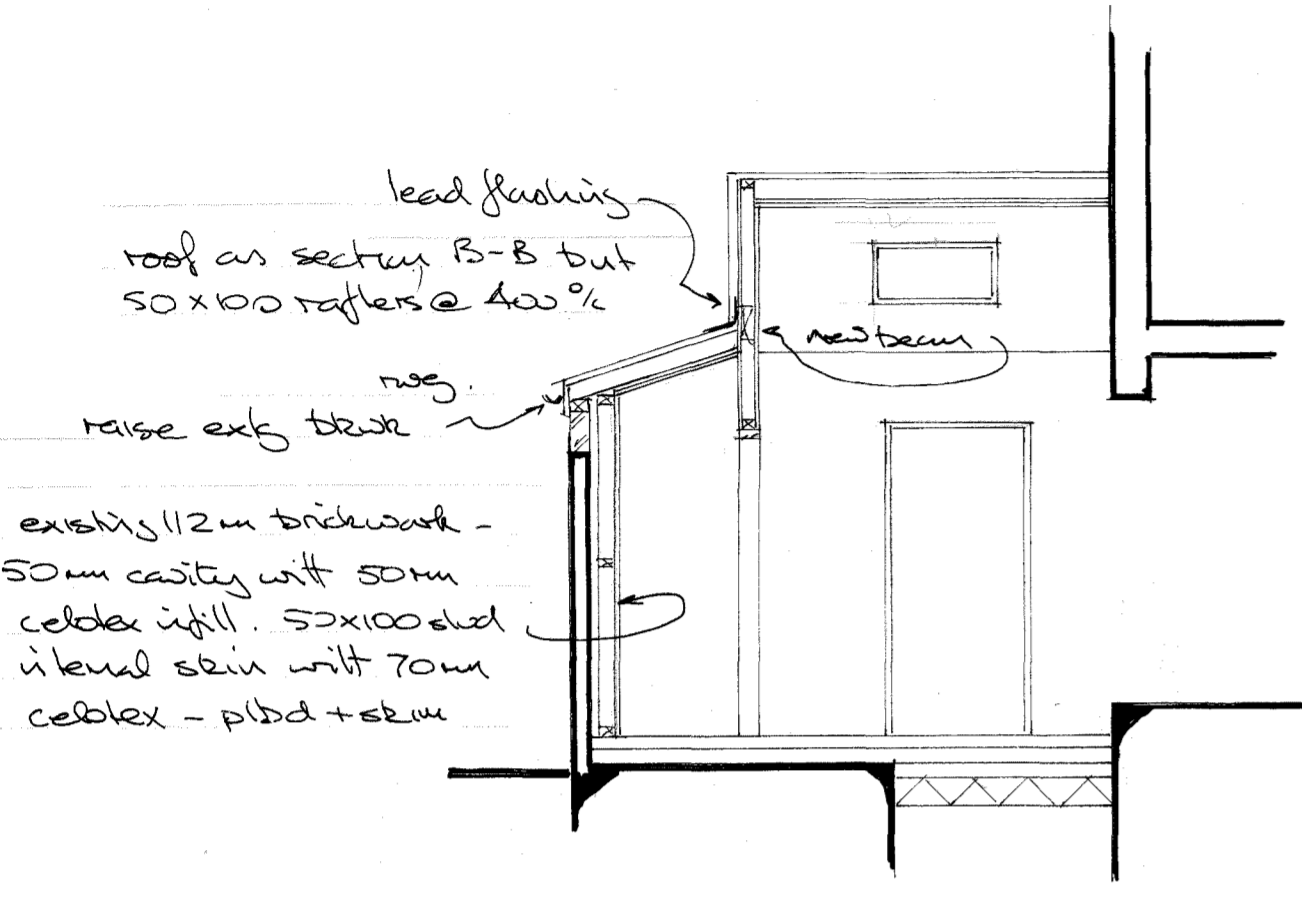 lead flashing
roof as section B-B but
50 x 100 rafters @ 400 %
new beam
rwg.
raise extg bkwk
existing 112mm brickwork -
50mm cavity with 50mm
celotex infill. 50x100 stud
internal skin with 70mm
celotex - plbd + skim